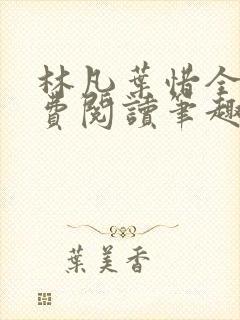 林凡葉惜全
費閱讀筆趣
葉美香